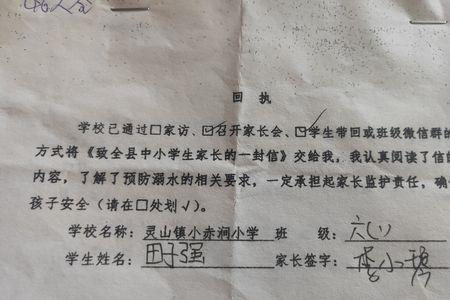 回执
学校已通过□家访、☑召开家长会、☑学生带回或班级微信群的
方式将《致全县中小学生家长的一封信》交给我，我认真阅读了信的
内容，了解了预防溺水的相关要求，一定承担起家长监护责任，确
孩子安全（请在□处划√）。
学校名称：灵山镇小赤涧小学 班 级：六(1)
学生姓名：田子强 家长签字：李小